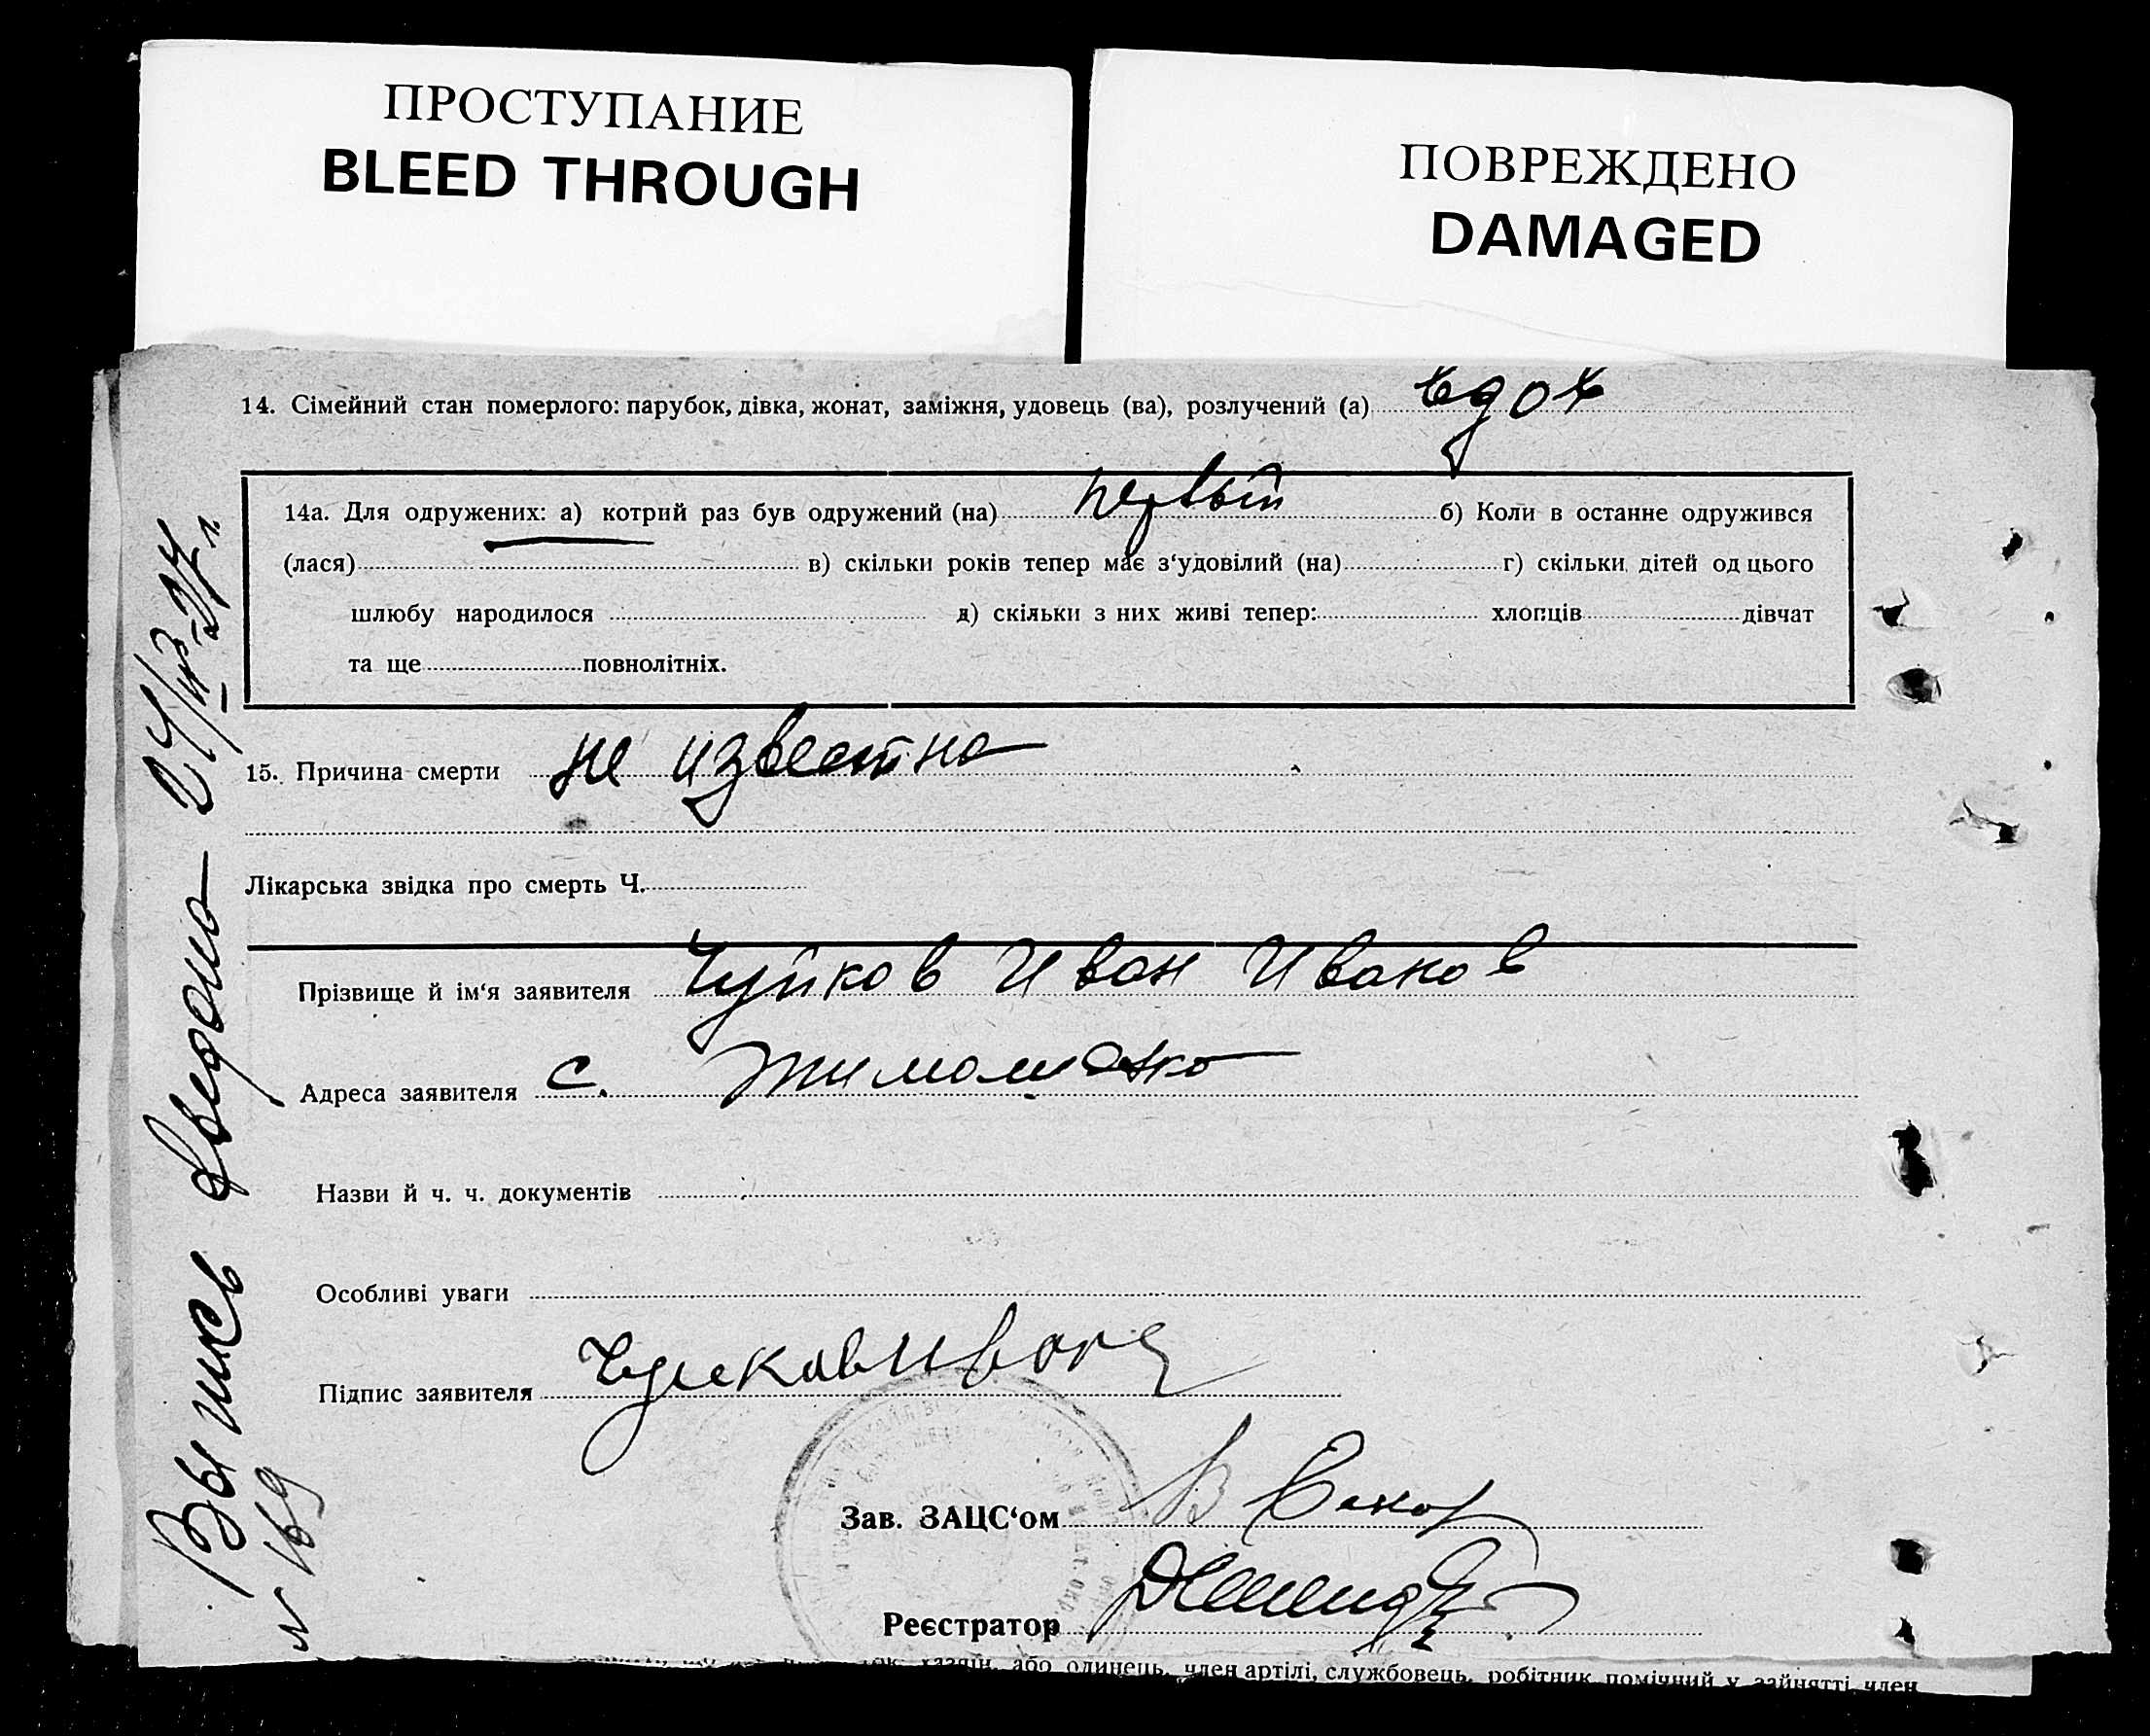 ПРОСТУПАНИЕ
BLEED THROUGH
ПОВРЕЖДЕНО
DAMAGED
14. Сімейний стан померлого: парубок, дівка, жонат, заміжня, удовець (ва), розлучений (а)
14а. Для одружених: а) котрий раз був одружений (на) первый б) Коли в останне одружився
(лася) в) скільки років тепер має з‘удовілий (на) г) скільки дітей од цього
шлюбу народилося д) скільки з них живі тепер: хлопців дівчат
та ще повнолітніх.
15. Причина смерти не известна
Лікарська звідка про смерть Ч.
Прізвище й ім‘я заявителя Чуйков Иван Иванов
Адреса заявителя с.
Назви й ч. ч. документів
Особливі уваги
Підпис заявителя
Зав. ЗАЦС‘ом
Реєстратор
хазяїн, або одинець, член артілі, службовець, робітник помічний у зайнятті член
Выпись выдана
N 169